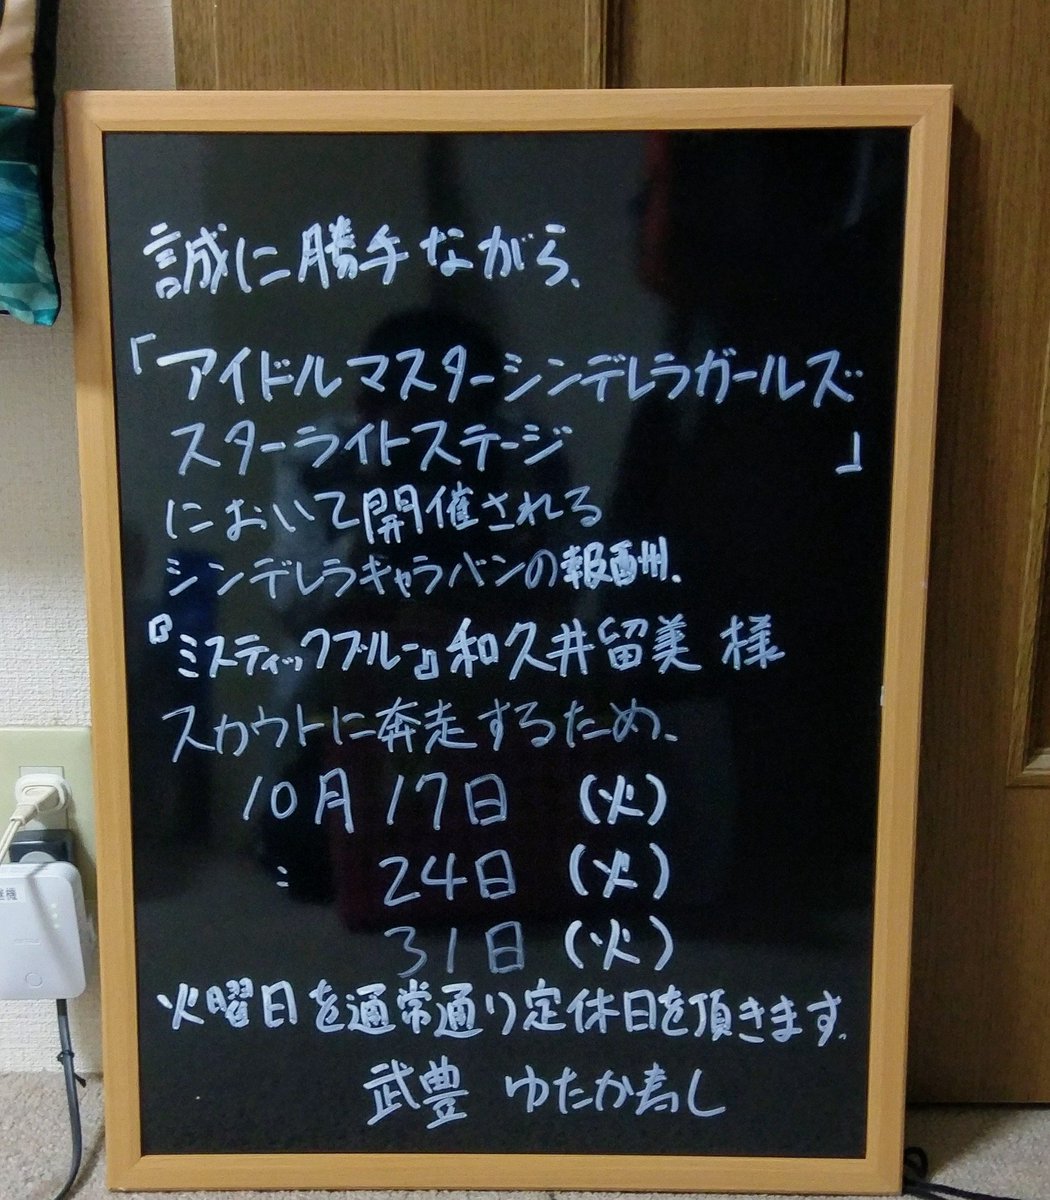 誠に勝手ながら、
「アイドルマスターシンデレラガールズ
スターライトステージ」
において開催される
シンデレラキャラバンの報酬、
『ミスティックブルー』和久井留美 様
スカウトに奔走するため、
10月17日 (火)
: 24日 (火)
31日 (火)
火曜日を通常通り定休日を頂きます。
武豊 ゆたか寿し